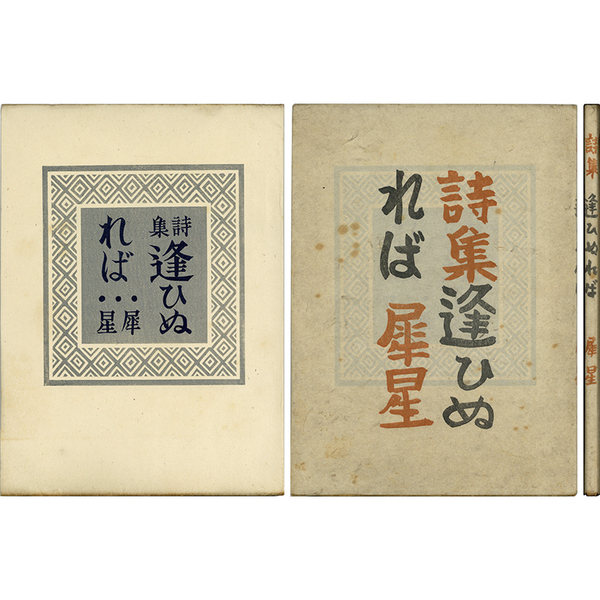 詩集
逢ひぬ
れば
・・・
犀星
詩集逢ひぬ
れば 犀星
詩集 逢ひぬれば 犀星